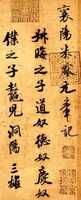 襄陽米黻元章記
叔晦之子道奴德奴慶奴
僕之子鰲兒洞陽三雄